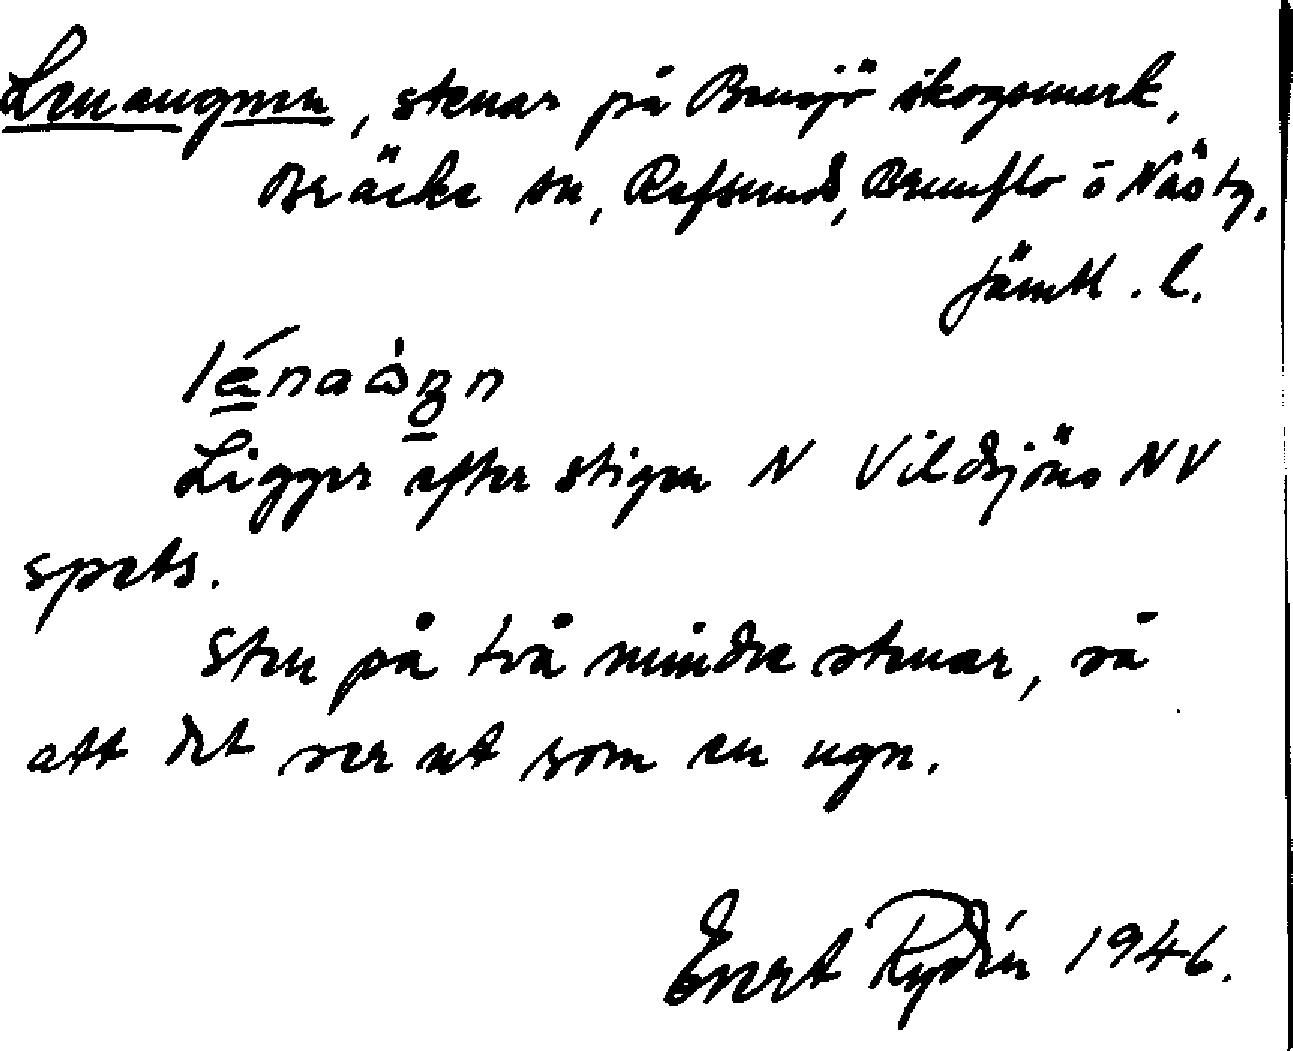 Lenaugnen, stenar på Bensjö skogsmark,
Bräcke sn, Refsunds, Brunflo o Näs tg,
Jämtl. l.
Ligger efter stigen N Vildsjöns NV
spets.
Sten på två mindre stenar, så
att det ser ut som en ugn.
Evert Rydén 1946.